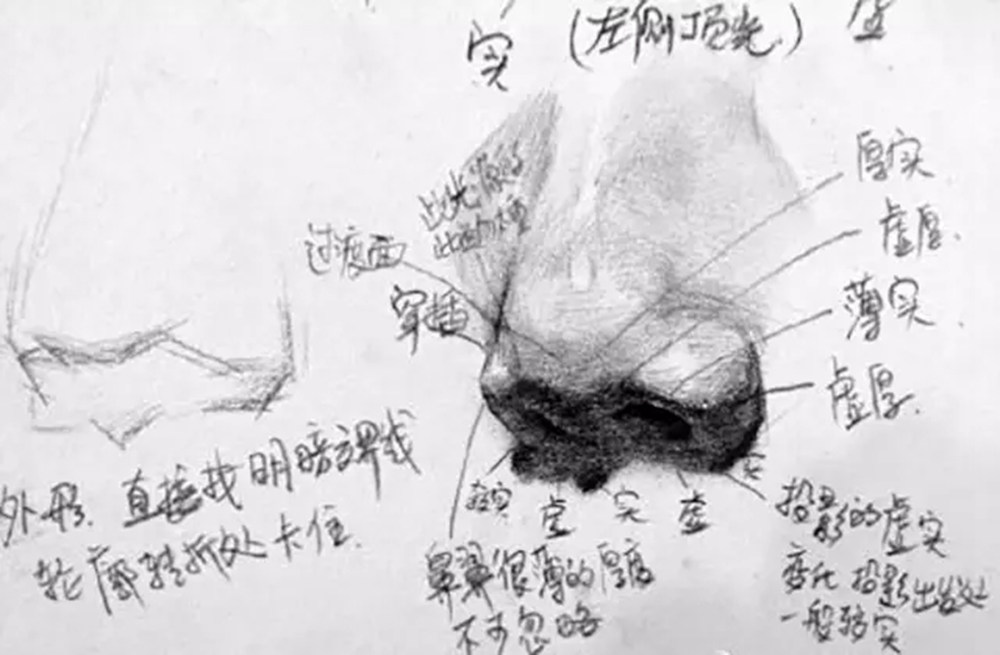 实
(左侧顶光.)
虚
厚实
虚厚.
薄实.
虚厚.
过渡面
穿插
外形. 直接找明暗交界线
轮廓转折处卡住.
实
虚
实
虚
实
鼻翼很薄的厚度
不可忽略
投影的虚实
变化 投影出发处
一般较实